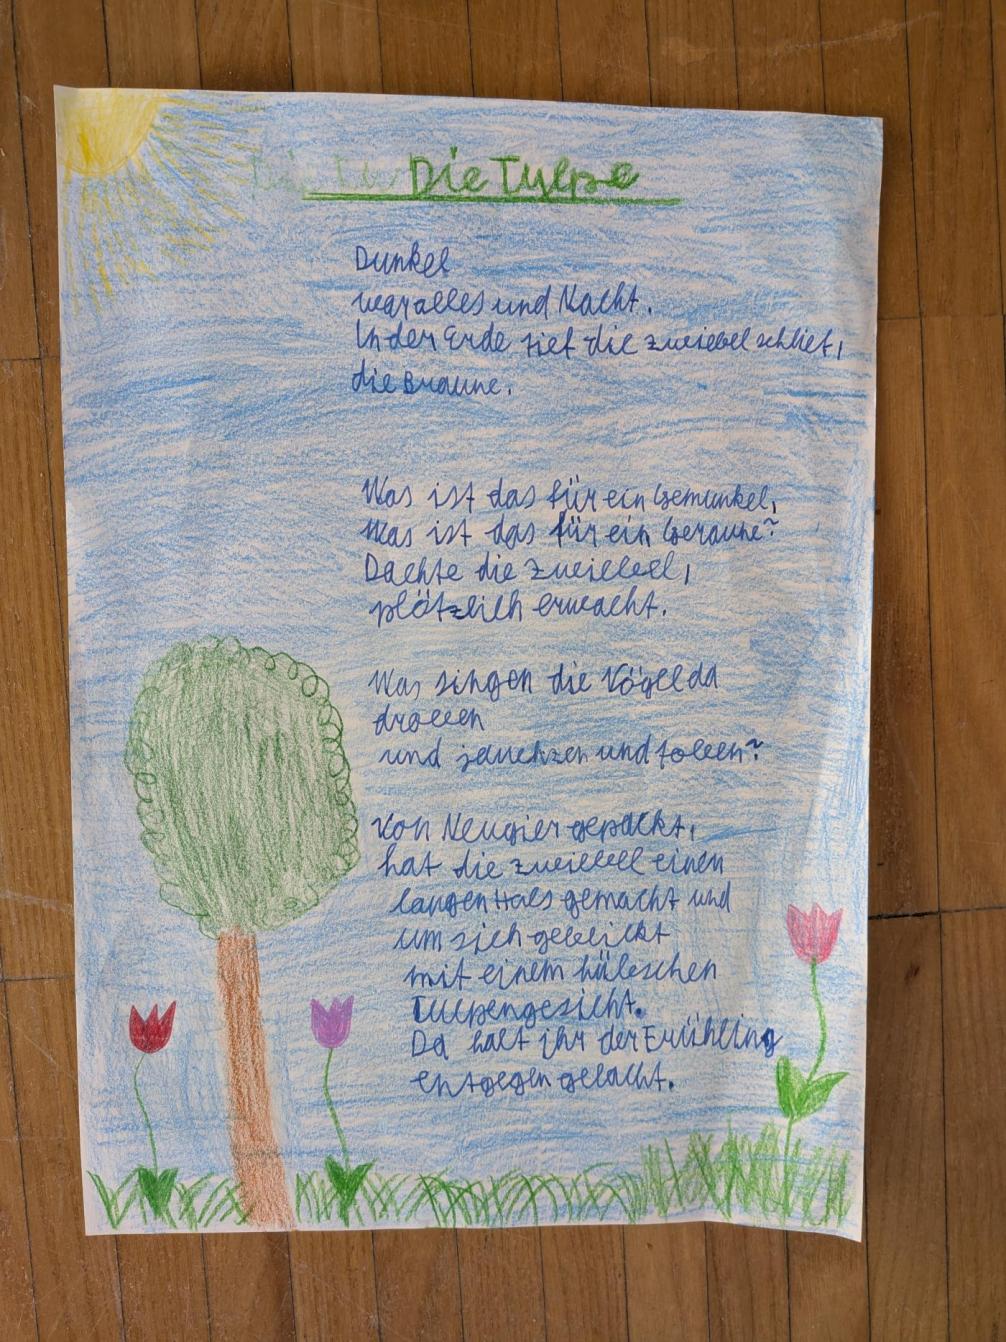 Die Tulpe
Dunkel
war alles und Nacht.
In der Erde tief die zwiebel schlief,
die Braune.
Was ist das für ein Gemunkel,
Was ist das für ein Geraune?
Dachte die zwiebel,
plötzlich erwacht.
Was singen die Vögel da
droben
und jauchzen und toben?
Von Neugier gepackt,
hat die zwiebel einen
langen Hals gemacht und
um sich geblickt
mit einem hübschen
Tulpengesicht.
Da hat ihr der Frühling
entgegen gelacht.